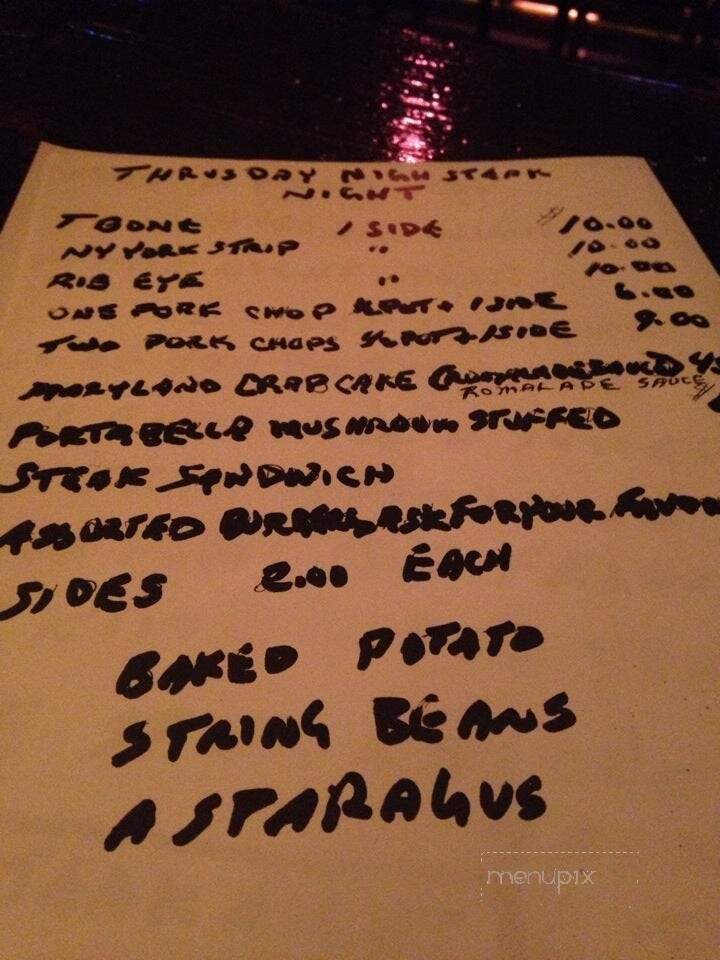 THRUSDAY NIGH STEAK
NIGHT
T BONE / SIDE 10.00
NY YORK STRIP " 10.00
RIB EYE " 10.00
ONE PORK CHOP + 1 SIDE 6.00
TWO PORK CHOPS + 1 SIDE 9.00
MARYLAND CRAB CAKE
ROMALADE SAUCE
PORTABELLA MUSHROOM STUFFED
STEAK SANDWICH
ASSORTED BURGERS ASK FOR YOUR
SIDES 2.00 EACH
BAKED POTATO
STRING BEANS
ASPARAGUS
menupix